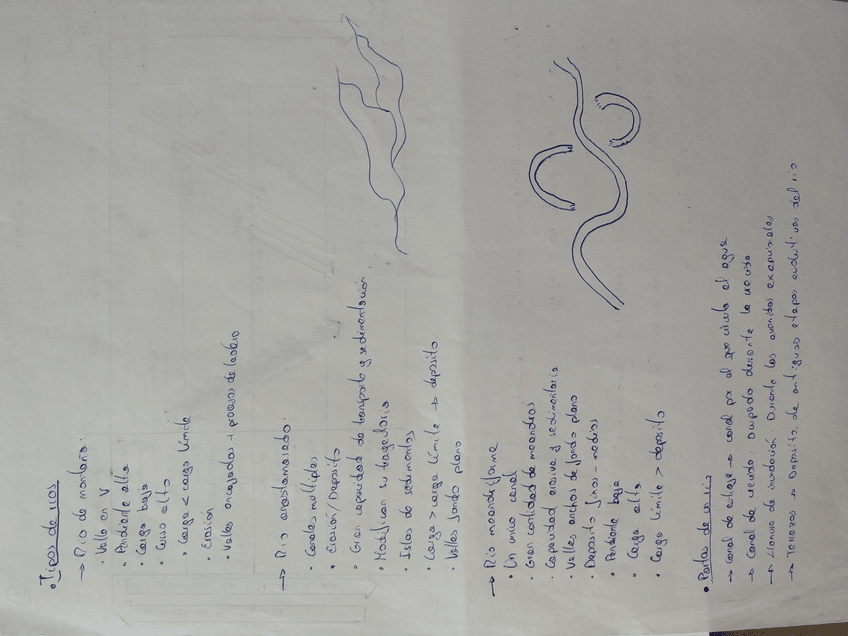 • Tipos de ríos
→ Río de montaña:
• Valle en V
• Pendiente alta
• Carga baja
• Curso alto
• Carga < carga límite
• Erosión
• Valles encajados + procesos de ladera
→ Río anastomosado:
• Canales múltiples
• Erosión/Deposito
• Gran capacidad de transporte y sedimentación
• Modifican su trayectoria
• Islas de sedimentos
• Carga > carga límite → deposito
• Valles fondo plano
→ Río meandriforme
• Un único canal
• Gran cantidad de meandros
• Capacidad erosiva y sedimentaria
• Valles anchos de fondo plano
• Deposito finos-medios
• Pendiente baja
• Carga alta
• Carga límite > deposito
• Partes de un río
→ Canal de estiaje → canal por el que circula el agua
→ Canal de crecida: Ocupado durante la crecida
→ Llanura de inundación: Durante las avenidas excepcionales
→ Terrazas → Deposito de antiguas etapas evolutivas del río